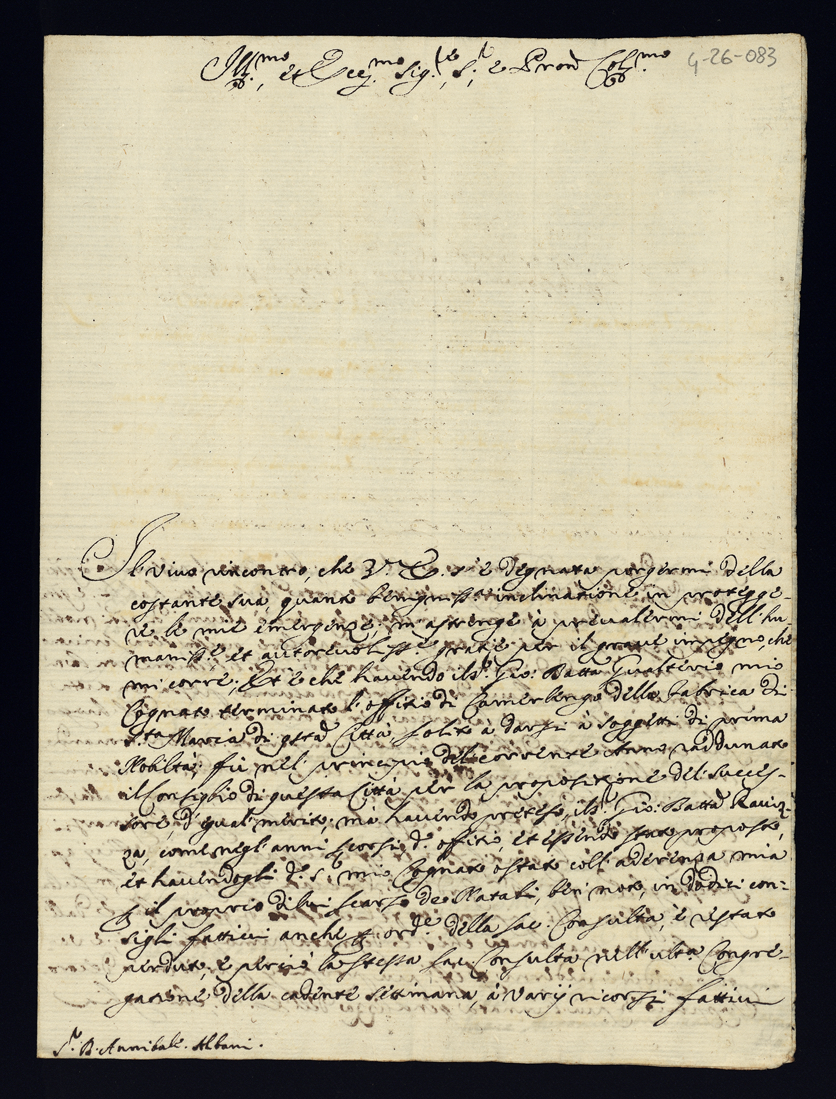 Ill.mo, et Ecc.mo Sig.re, S.r e Pron Col.mo
4-26-083
Il vivo rincontro, che V. E. s'è degnata porgermi della
costante sua, quanto benigniss.a inclinatione in protegge-
re le mie emergenze, m'astringe à prevalermi dell'hu-
maniss.e et autorevoliss.e gratie per il grave impegno, che
mi corre; Et è che havendo il S.r Gio: Batta Gualterio mio
Cognato terminato l'offitio di Camerlengo della Fabrica di
S.ta Maria di q.sta Città, solito à darsi à soggetti di prima
Nobiltà; fù nel principio del corrente Anno radunato
il Consiglio di questa Città per la propositione del succes-
sore d'egual merito; mà havendo preteso, il S.r Gio: Batta Raviz-
za, come negl'anni scorsi d.o offitio, et essendo stato proposto,
et havendogli d.o S.r mio Cognato ostato coll'aderenza mia
p il proprio di lui scarso de Natali, ben noto, in dodici con-
sigli fattivi anche p ord.e della Sac: Consulta, è restato
perduto, e perciò la stessa Sac: Consulta nell'ult.a Congre-
gatione della cadente settimana, à varij ricorsi fattivi
S.r D. Annibale Albani.